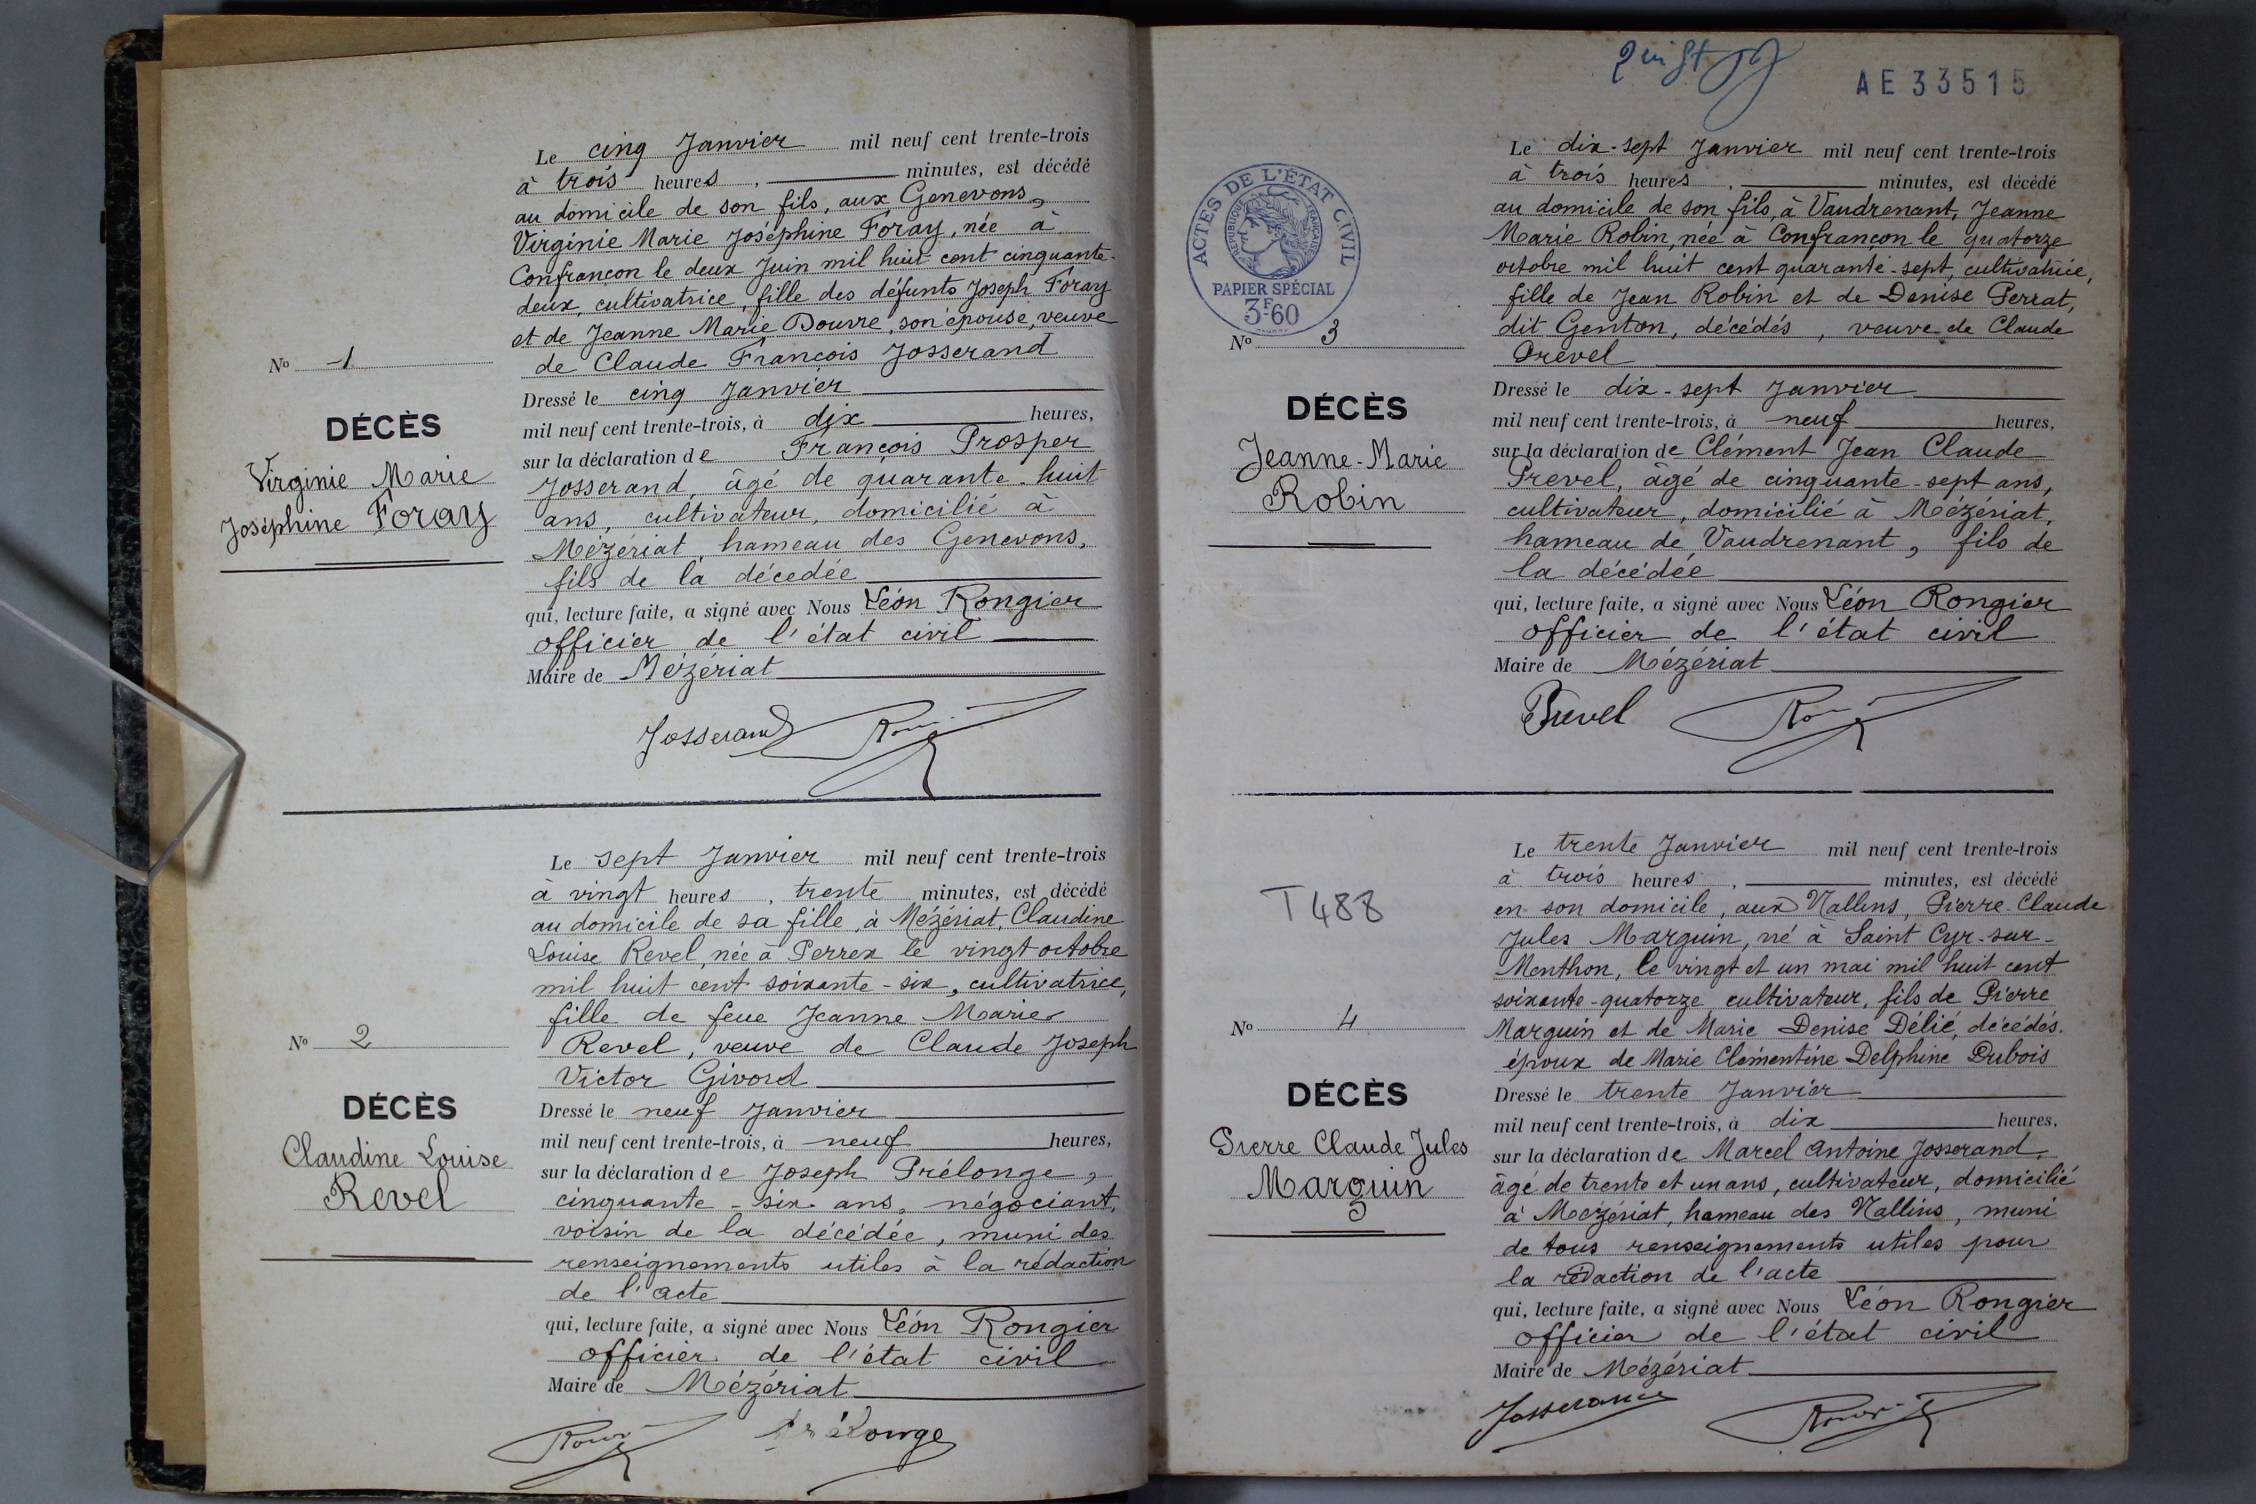 Le cinq Janvier mil neuf cent trente-trois
à trois heures , minutes, est décédé
au domicile de son fils, aux Genevons,
Virginie Marie Joséphine Foray, née à
Confrançon le deux Juin mil huit cent cinquante-
deux, cultivatrice, fille des défunts Joseph Foray
et de Jeanne Marie Douvre, son épouse, veuve
de Claude François Josserand
Nº 1
DÉCÈS
Virginie Marie
Joséphine Foray
Dressé le cinq Janvier
mil neuf cent trente-trois, à dix heures,
sur la déclaration de François Prosper
Josserand, âgé de quarante-huit
ans, cultivateur, domicilié à
Mézériat, hameau des Genevons,
fils de la décédée
qui, lecture faite, a signé avec Nous Léon Rongier
officier de l'état civil
Maire de Mézériat
Josserand
Le sept Janvier mil neuf cent trente-trois
à vingt heures , trente minutes, est décédé
au domicile de sa fille, à Mézériat, Claudine
Louise Revel, née à Perrex le vingt octobre
mil huit cent soixante-six, cultivatrice,
fille de feue Jeanne Marie
Revel, veuve de Claude Joseph
Victor Givord
Nº 2
DÉCÈS
Claudine Louise
Revel
Dressé le neuf Janvier
mil neuf cent trente-trois, à neuf heures,
sur la déclaration de Joseph Prélonge,
cinquante-six ans, négociant,
voisin de la décédée, muni des
renseignements utiles à la rédaction
de l'acte
qui, lecture faite, a signé avec Nous Léon Rongier
officier de l'état civil
Maire de Mézériat
Prélonge
AE33515
ACTES DE L'ÉTAT CIVIL
RÉPUBLIQUE FRANÇAISE
PAPIER SPÉCIAL
3F60
Le dix-sept Janvier mil neuf cent trente-trois
à trois heures , minutes, est décédé
au domicile de son fils, à Vaudrenant, Jeanne
Marie Robin, née à Confrançon le quatorze
octobre mil huit cent quarante-sept, cultivatrice,
fille de Jean Robin et de Denise Perrat,
dit Genton, décédés, veuve de Claude
Prevel
Nº 3
DÉCÈS
Jeanne-Marie
Robin
Dressé le dix-sept Janvier
mil neuf cent trente-trois, à neuf heures,
sur la déclaration de Clément Jean Claude
Prevel, âgé de cinquante-sept ans,
cultivateur, domicilié à Mézériat,
hameau de Vaudrenant, fils de
la décédée
qui, lecture faite, a signé avec Nous Léon Rongier
officier de l'état civil
Maire de Mézériat
Prevel
Le trente Janvier mil neuf cent trente-trois
à trois heures , minutes, est décédé
en son domicile, aux Nallins, Pierre-Claude
Jules Marguin, né à Saint Cyr-sur-
Menthon, le vingt et un mai mil huit cent
soixante-quatorze, cultivateur, fils de Pierre
Marguin et de Marie Denise Délié, décédés.
époux de Marie Clémentine Delphine Dubois
T488
Nº 4
DÉCÈS
Pierre Claude Jules
Marguin
Dressé le trente Janvier
mil neuf cent trente-trois, à dix heures,
sur la déclaration de Marcel Antoine Josserand,
âgé de trente et un ans, cultivateur, domicilié
à Mézériat, hameau des Nallins, muni
de tous renseignements utiles pour
la rédaction de l'acte
qui, lecture faite, a signé avec Nous Léon Rongier
officier de l'état civil
Maire de Mézériat
Josserand